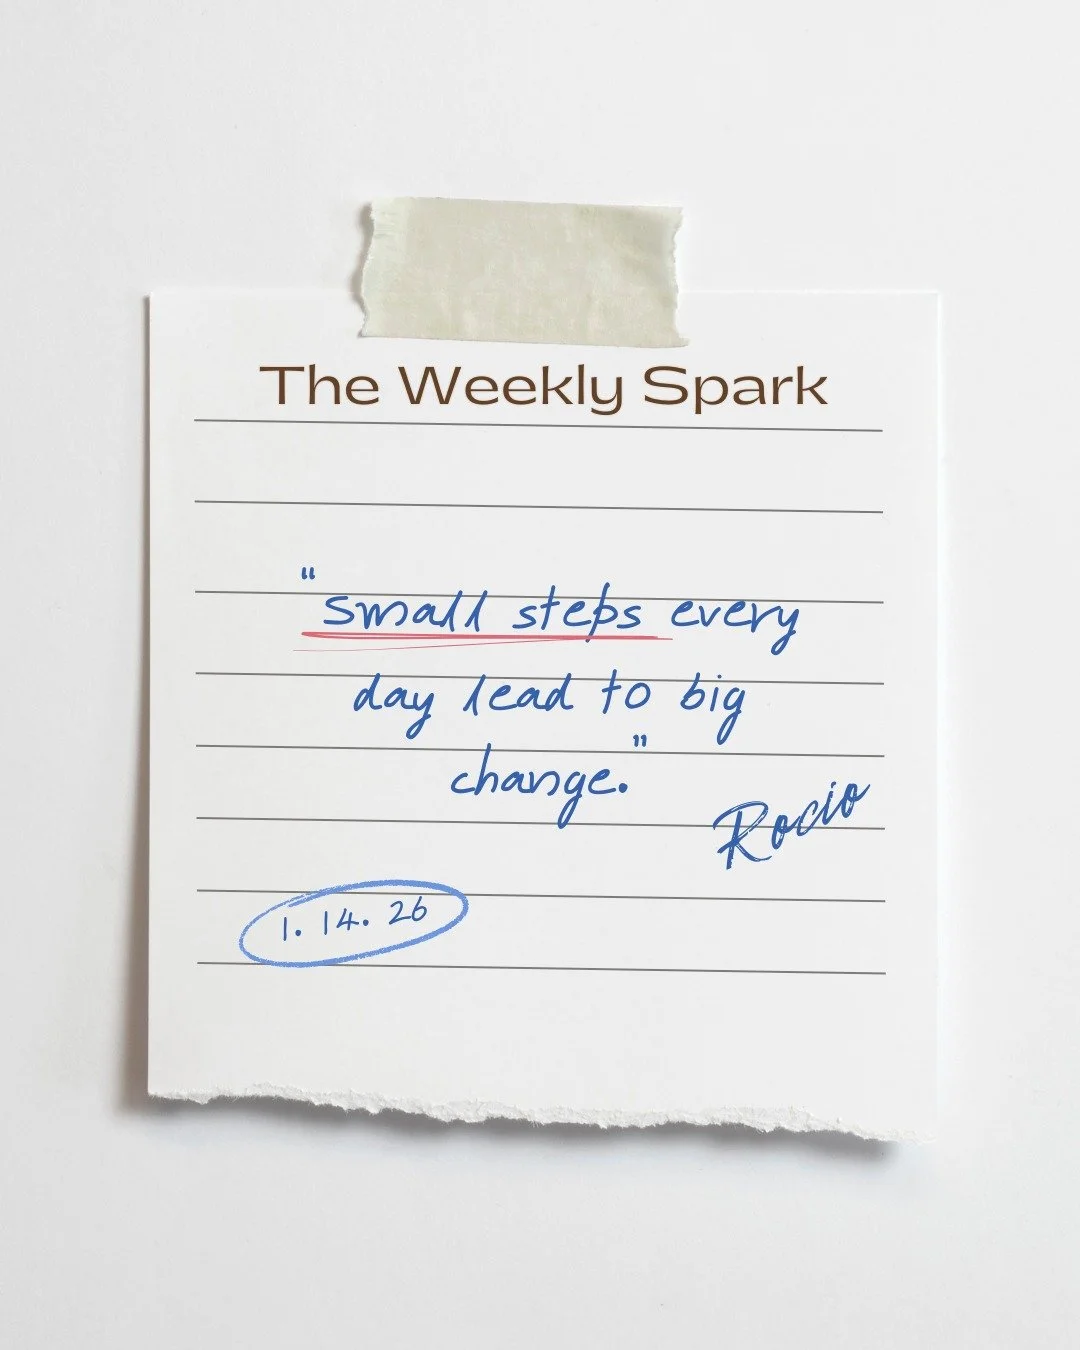 The Weekly Spark
"Small steps every
day lead to big
change."
Rocio
1. 14. 26